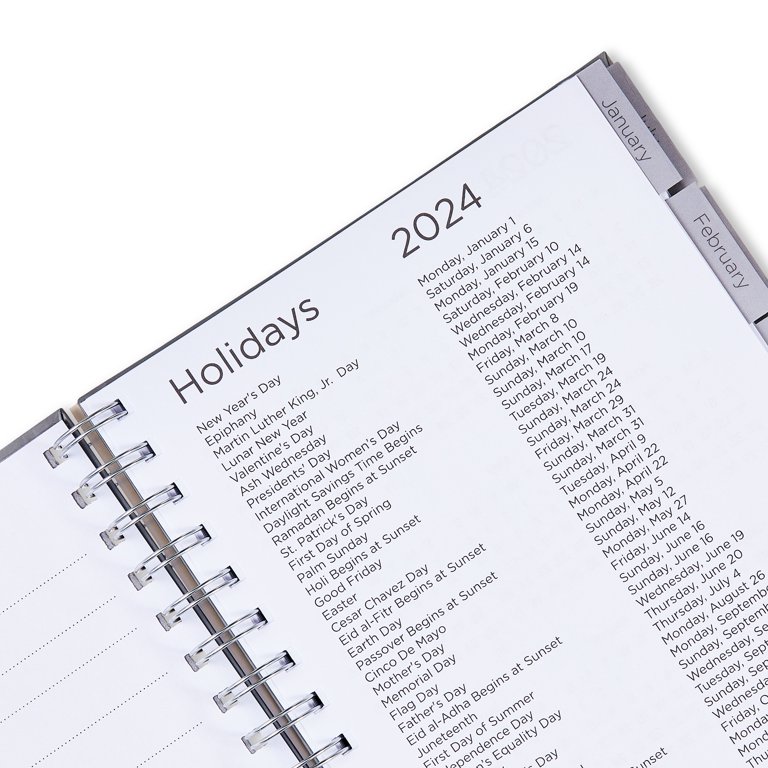 Holidays 2024
New Year's Day Monday, January 1
Epiphany Saturday, January 6
Martin Luther King, Jr. Day Monday, January 15
Lunar New Year Saturday, February 10
Valentine's Day Wednesday, February 14
Ash Wednesday Wednesday, February 14
Presidents' Day Monday, February 19
International Women's Day Friday, March 8
Daylight Savings Time Begins Sunday, March 10
Ramadan Begins at Sunset Sunday, March 10
St. Patrick's Day Sunday, March 17
First Day of Spring Tuesday, March 19
Palm Sunday Sunday, March 24
Holi Begins at Sunset Sunday, March 24
Good Friday Friday, March 29
Easter Sunday, March 31
Cesar Chavez Day Sunday, March 31
Eid al-Fitr Begins at Sunset Tuesday, April 9
Earth Day Monday, April 22
Passover Begins at Sunset Monday, April 22
Cinco De Mayo Sunday, May 5
Mother's Day Sunday, May 12
Memorial Day Monday, May 27
Flag Day Friday, June 14
Father's Day Sunday, June 16
Eid al-Adha Begins at Sunset Sunday, June 16
Juneteenth Wednesday, June 19
First Day of Summer Thursday, June 20
Independence Day Thursday, July 4
Equality Day Monday, August 26
Day Monday,
at Sunset Sunday,
January
February